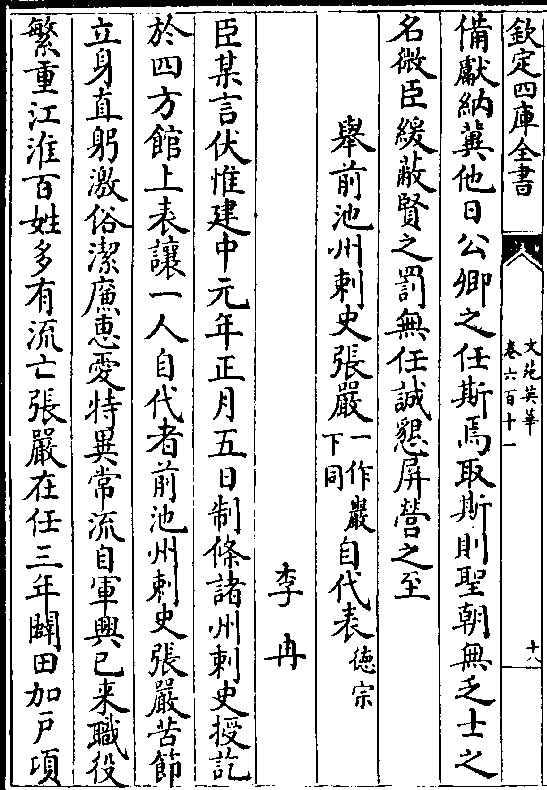 欽定四庫全書
文苑英華
卷六百十一
十八
備獻納冀他日公卿之任斯焉取斯則聖朝無乏士之
名微臣緩蔽賢之罰無任誠懇屏營之至
舉前池州刺史張嚴一作巖下同自代表德宗
李冉
臣某言伏惟建中元年正月五日制條諸州刺史授訖
於四方館上表讓一人自代者前池州刺史張嚴苦節
立身直躬激俗潔廉恵愛特異常流自軍興已来職役
繁重江淮百姓多有流亡張嚴在任三年闢田加戸項